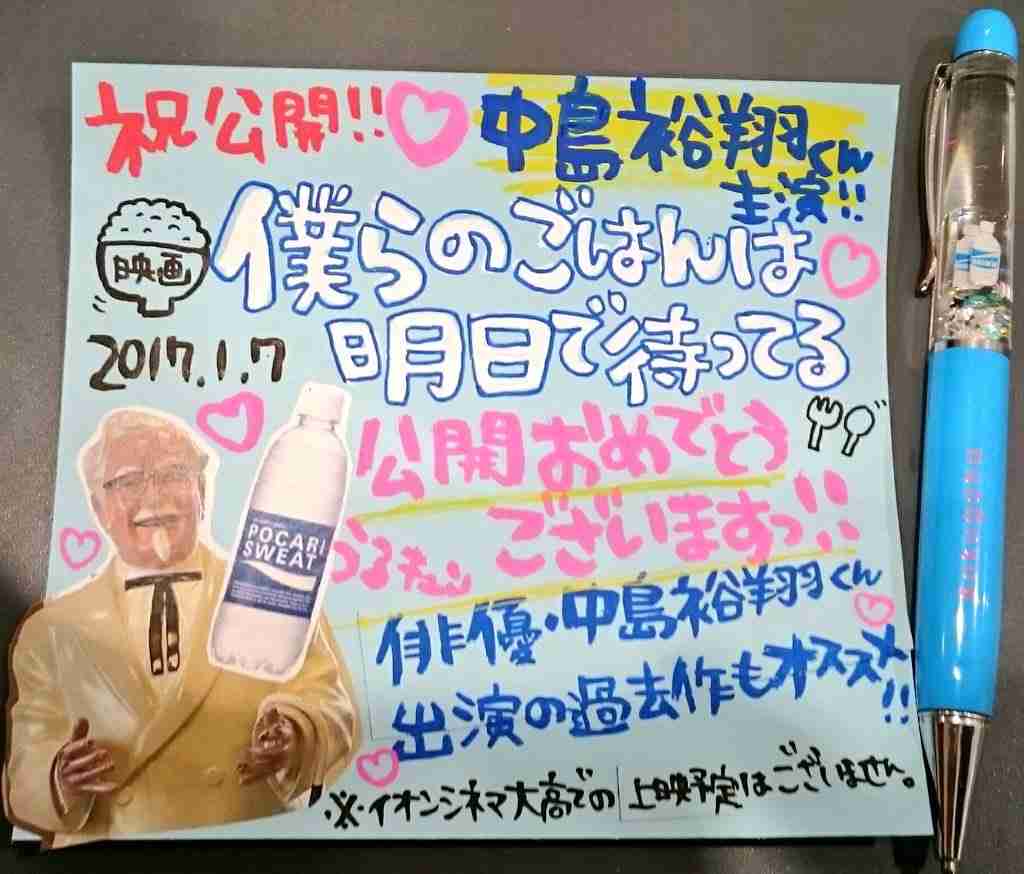 祝公開!!
中島裕翔くん
主演!!
映画
僕らのごはんは
明日で待ってる
2017.1.7
公開おめでとう
ございますっ!!
POCARI
SWEAT
俳優・中島裕翔くん
出演の過去作もオススメ!!
※イオンシネマ大高での上映予定はございません。